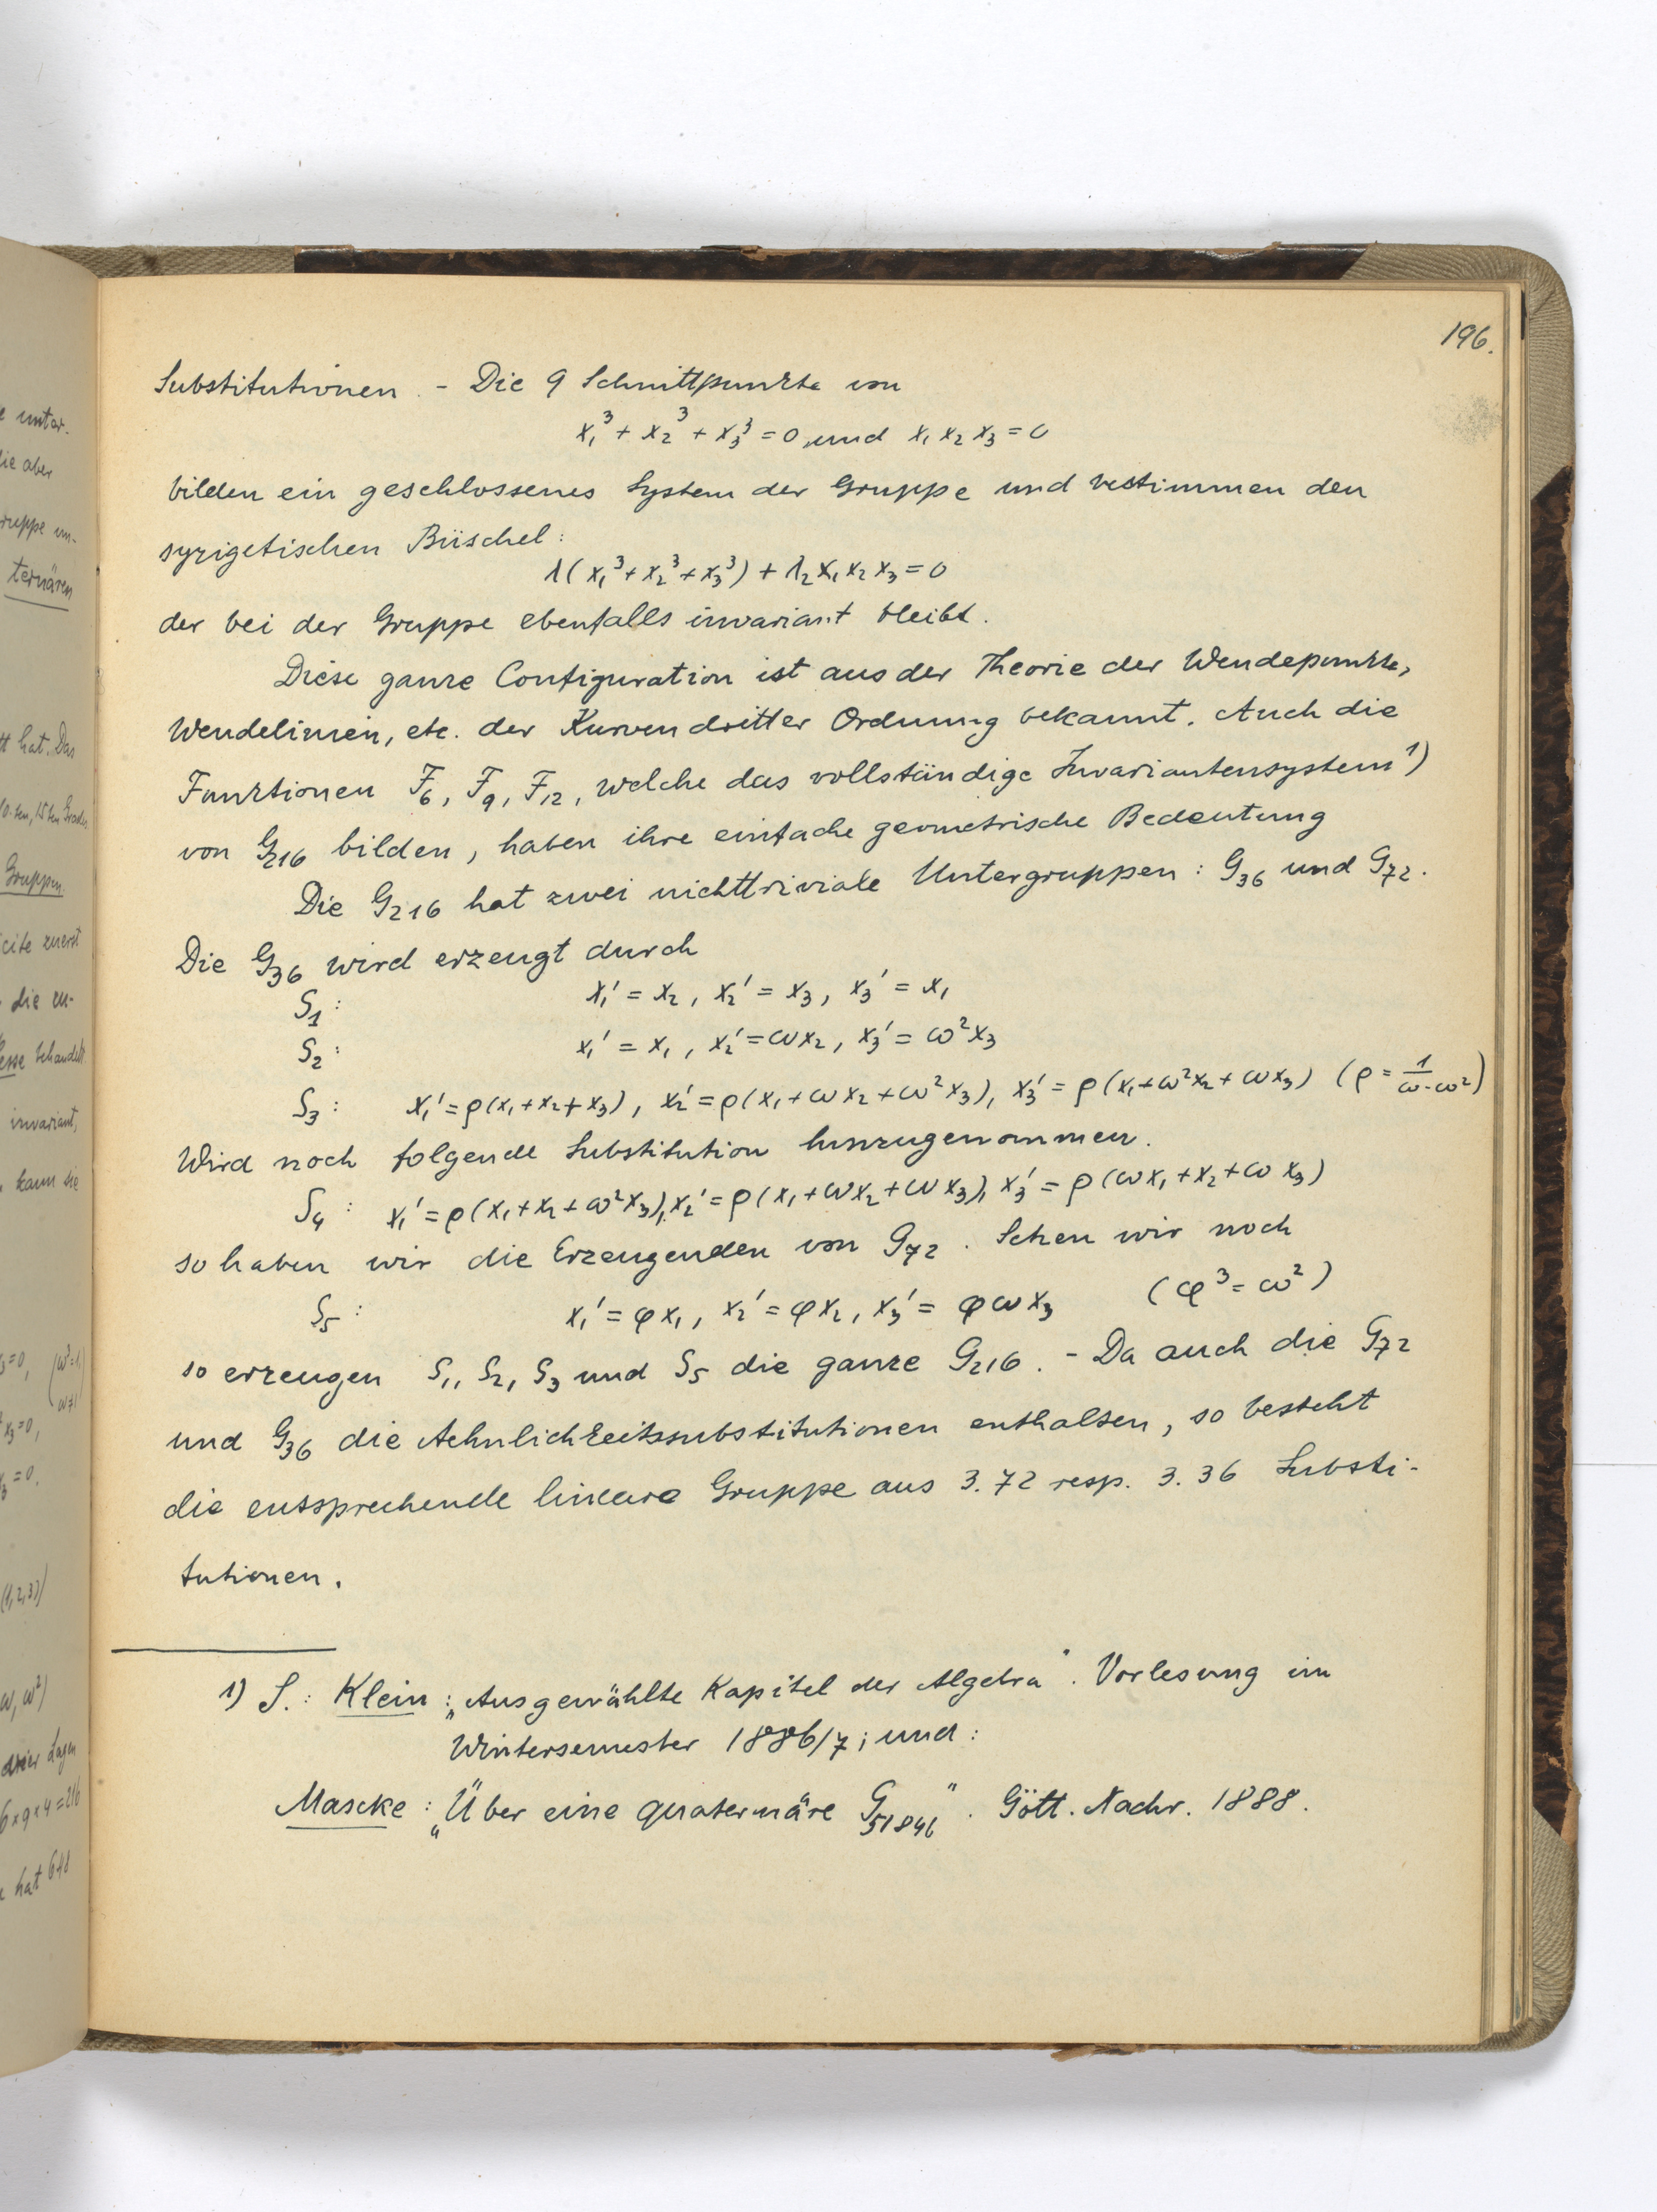 196.
Substitutionen. - Die 9 Schnittpunkte von
x₁³ + x₂³ + x₃³ = 0, und x₁ x₂ x₃ = 0
bilden ein geschlossenes System der Gruppe und bestimmen den
syzigetischen Büschel:
λ(x₁³ + x₂³ + x₃³) + λ₂ x₁ x₂ x₃ = 0
der bei der Gruppe ebenfalls invariant bleibt.
Diese ganze Configuration ist aus der Theorie der Wendepunkte,
Wendelinien, etc. der Kurven dritter Ordnung bekannt. Auch die
Funktionen F₆, F₉, F₁₂, welche das vollständige Invariantensystem ¹)
von G₂₁₆ bilden, haben ihre einfache geometrische Bedeutung
Die G₂₁₆ hat zwei nichttriviale Untergruppen: G₃₆ und G₇₂.
Die G₃₆ wird erzeugt durch
S₁: x₁' = x₂, x₂' = x₃, x₃' = x₁
S₂: x₁' = x₁, x₂' = ωx₂, x₃' = ω²x₃
S₃: x₁' = ρ(x₁+x₂+x₃), x₂' = ρ(x₁+ωx₂+ω²x₃), x₃' = ρ(x₁+ω²x₂+ωx₃) (ρ = 1/(ω-ω²))
Wird noch folgende Substitution hinzugenommen.
S₄: x₁' = ρ(x₁+x₂+ω²x₃), x₂' = ρ(x₁+ωx₂+ωx₃), x₃' = ρ(ωx₁+x₂+ωx₃)
so haben wir die Erzeugenden von G₇₂. Sehen wir noch
S₅: x₁' = φx₁, x₂' = φx₂, x₃' = φωx₃ (φ³ = ω²)
so erzeugen S₁, S₂, S₃ und S₅ die ganze G₂₁₆. - Da auch die G₇₂
und G₃₆ die Aehnlichkeitssubstitutionen enthalten, so besteht
die entsprechende lineare Gruppe aus 3.72 resp. 3.36 Substi-
tutionen.
1) S.: Klein: „Ausgewählte Kapitel der Algebra". Vorlesung im
Wintersemester 1886/7; und:
Mascke: „Über eine quaternäre G₅₁₈₄₆". Gött. Nachr. 1888.